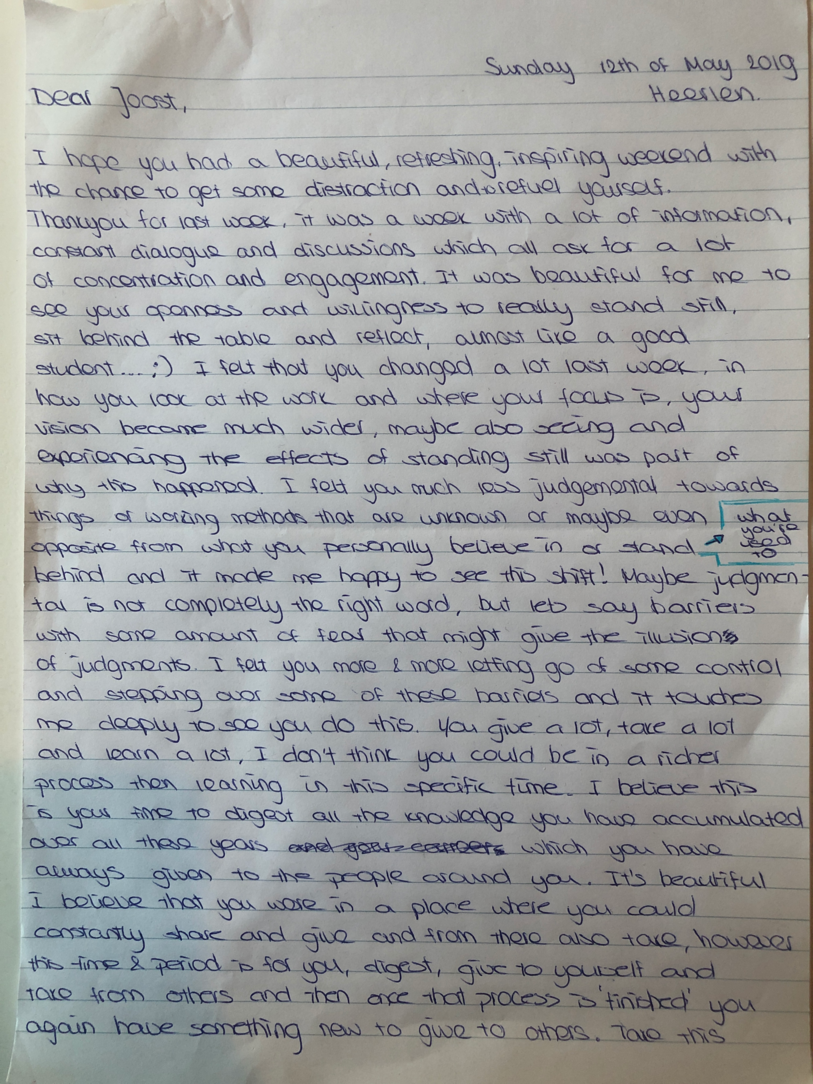 Sunday 12th of May 2019
Heerlen.
Dear Joost,
I hope you had a beautiful, refreshing, inspiring weekend with
the chance to get some distraction and refuel yourself.
Thankyou for last week, it was a week with a lot of information,
constant dialogue and discussions which all ask for a lot
of concentration and engagement. It was beautiful for me to
see your openness and willingness to really stand still,
sit behind the table and reflect, almost like a good
student... ;) I felt that you changed a lot last week, in
how you look at the work and where your focus is, your
vision became much wider, maybe also seeing and
experiencing the effects of standing still was part of
why this happened. I felt you much less judgemental towards
things or working methods that are unknown or maybe even
what
you're
used
to
opposite from what you personally believe in or stand
behind and it made me happy to see this shift! Maybe judgmen-
tal is not completely the right word, but lets say barriers
with some amount of fear that might give the illusions
of judgments. I felt you more & more letting go of some control
and stepping over some of these barriers and it touches
me deeply to see you do this. You give a lot, take a lot
and learn a lot, I don't think you could be in a richer
process then learning in this specific time. I believe this
is your time to digest all the knowledge you have accumulated
over all these years which you have
always given to the people around you. It's beautiful
I believe that you were in a place where you could
constantly share and give and from there also take, however
this time & period is for you, digest, give to yourself and
take from others and then once that process is 'finished' you
again have something new to give to others. Take this